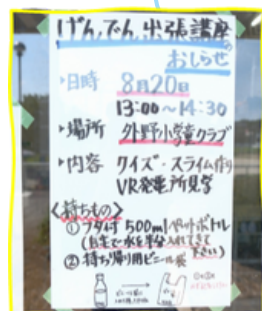 げんでん出張講座の
おしらせ
・日時 8月20日
13:00〜14:30
・場所 外野小学童クラブ
・内容 クイズ・スライム作り
VR発電所見学
<持ちもの>
① フタ付 500mlペットボトル
(お宅で水を半分入れてきて下さい)
② 持ち帰り用ビニール袋